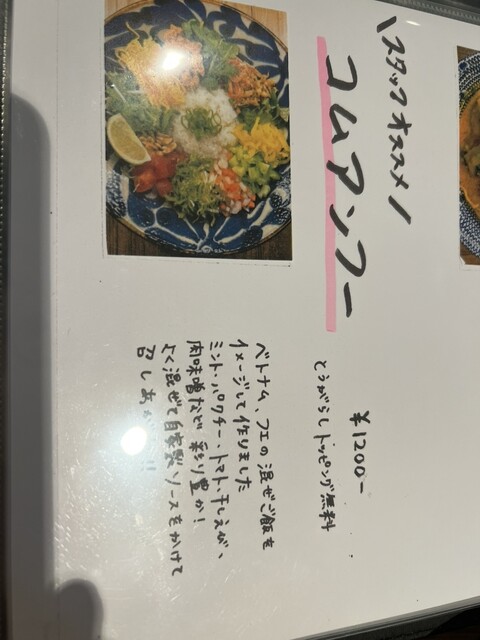 \スタッフオススメ/
コムアンフー
¥1200-
とうがらしトッピング無料
ベトナム、フエの混ぜご飯を
イメージして作りました
ミント・パクチー・トマト・干しえび、
肉味噌など彩り豊か!
よく混ぜて自家製ソースをかけて
召しあが!!